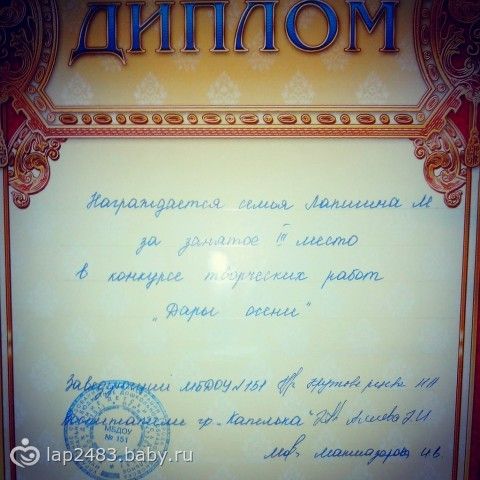 ДИПЛОМ
Награждается семья Лапшина М
за занятое III место
в конкурсе творческих работ
"Дары осени"
Заведующий МБДОУ №151
Воспитатели гр. "Капелька" Алиева
МБДОУ
№ 151
lap2483.baby.ru